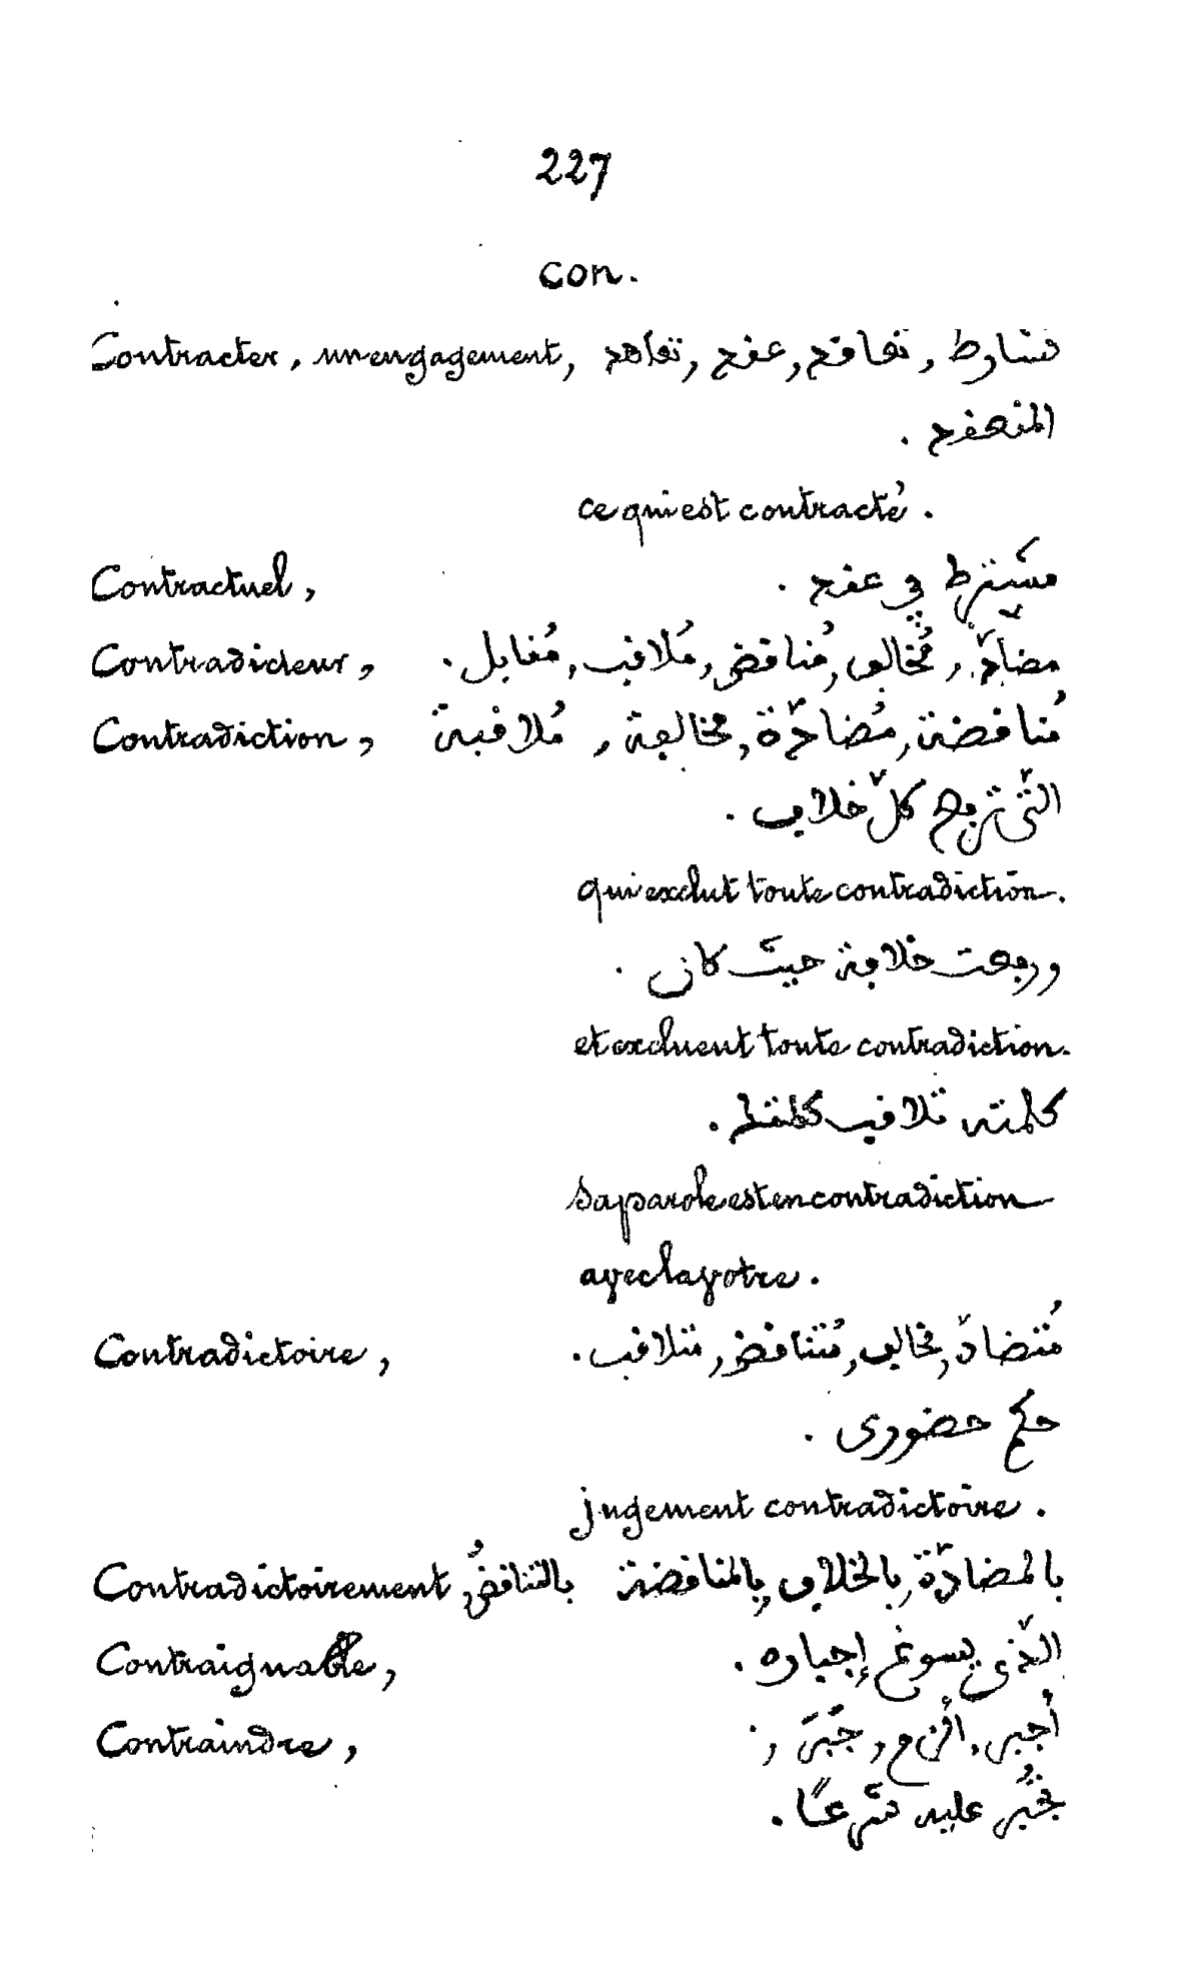 227
con.
Contracter, un engagement, تشارط, تعاقد, عقد, تعاهد
المنعقد.
ce qui est contracté.
Contractuel, مشترط في عقد.
Contradicteur, مضادّ, مُخالف, مُناقض, مُلاقب, مُقابل.
Contradiction, مُناقضة, مُضادّة, مخالفة, مُلاقبة
التّى ترفع كلّ خلاف.
qui exclut toute contradiction.
ورفعت خلافة حيث كان.
et excluent toute contradiction.
كلمته تلاقب كلمتك.
sa parole est en contradiction
avec la votre.
Contradictoire, مُتضادّ, مخالف, مُتناقض, متلاقب.
حكم حضورى.
jugement contradictoire.
Contradictoirement, بالمضادّة, بالخلاف, بالمناقضة بالتناقُض
Contraignable, الّذى يسوغ إجباره.
Contraindre, أجبر, ألزم, جَبَرَ,
يُجْبَر عليه شرعًا.